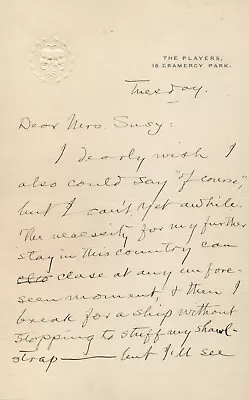 THE PLAYERS,
16 GRAMERCY PARK.
Tuesday.
Dear Mrs. Susy:
I dearly wish I
also could say "of course,"
but I can't yet awhile.
The necessity for my further
stay in this country can
close at any unfore-
seen moment, & then I
break for a ship without
stopping to stuff my shawl-
strap — but I'll see